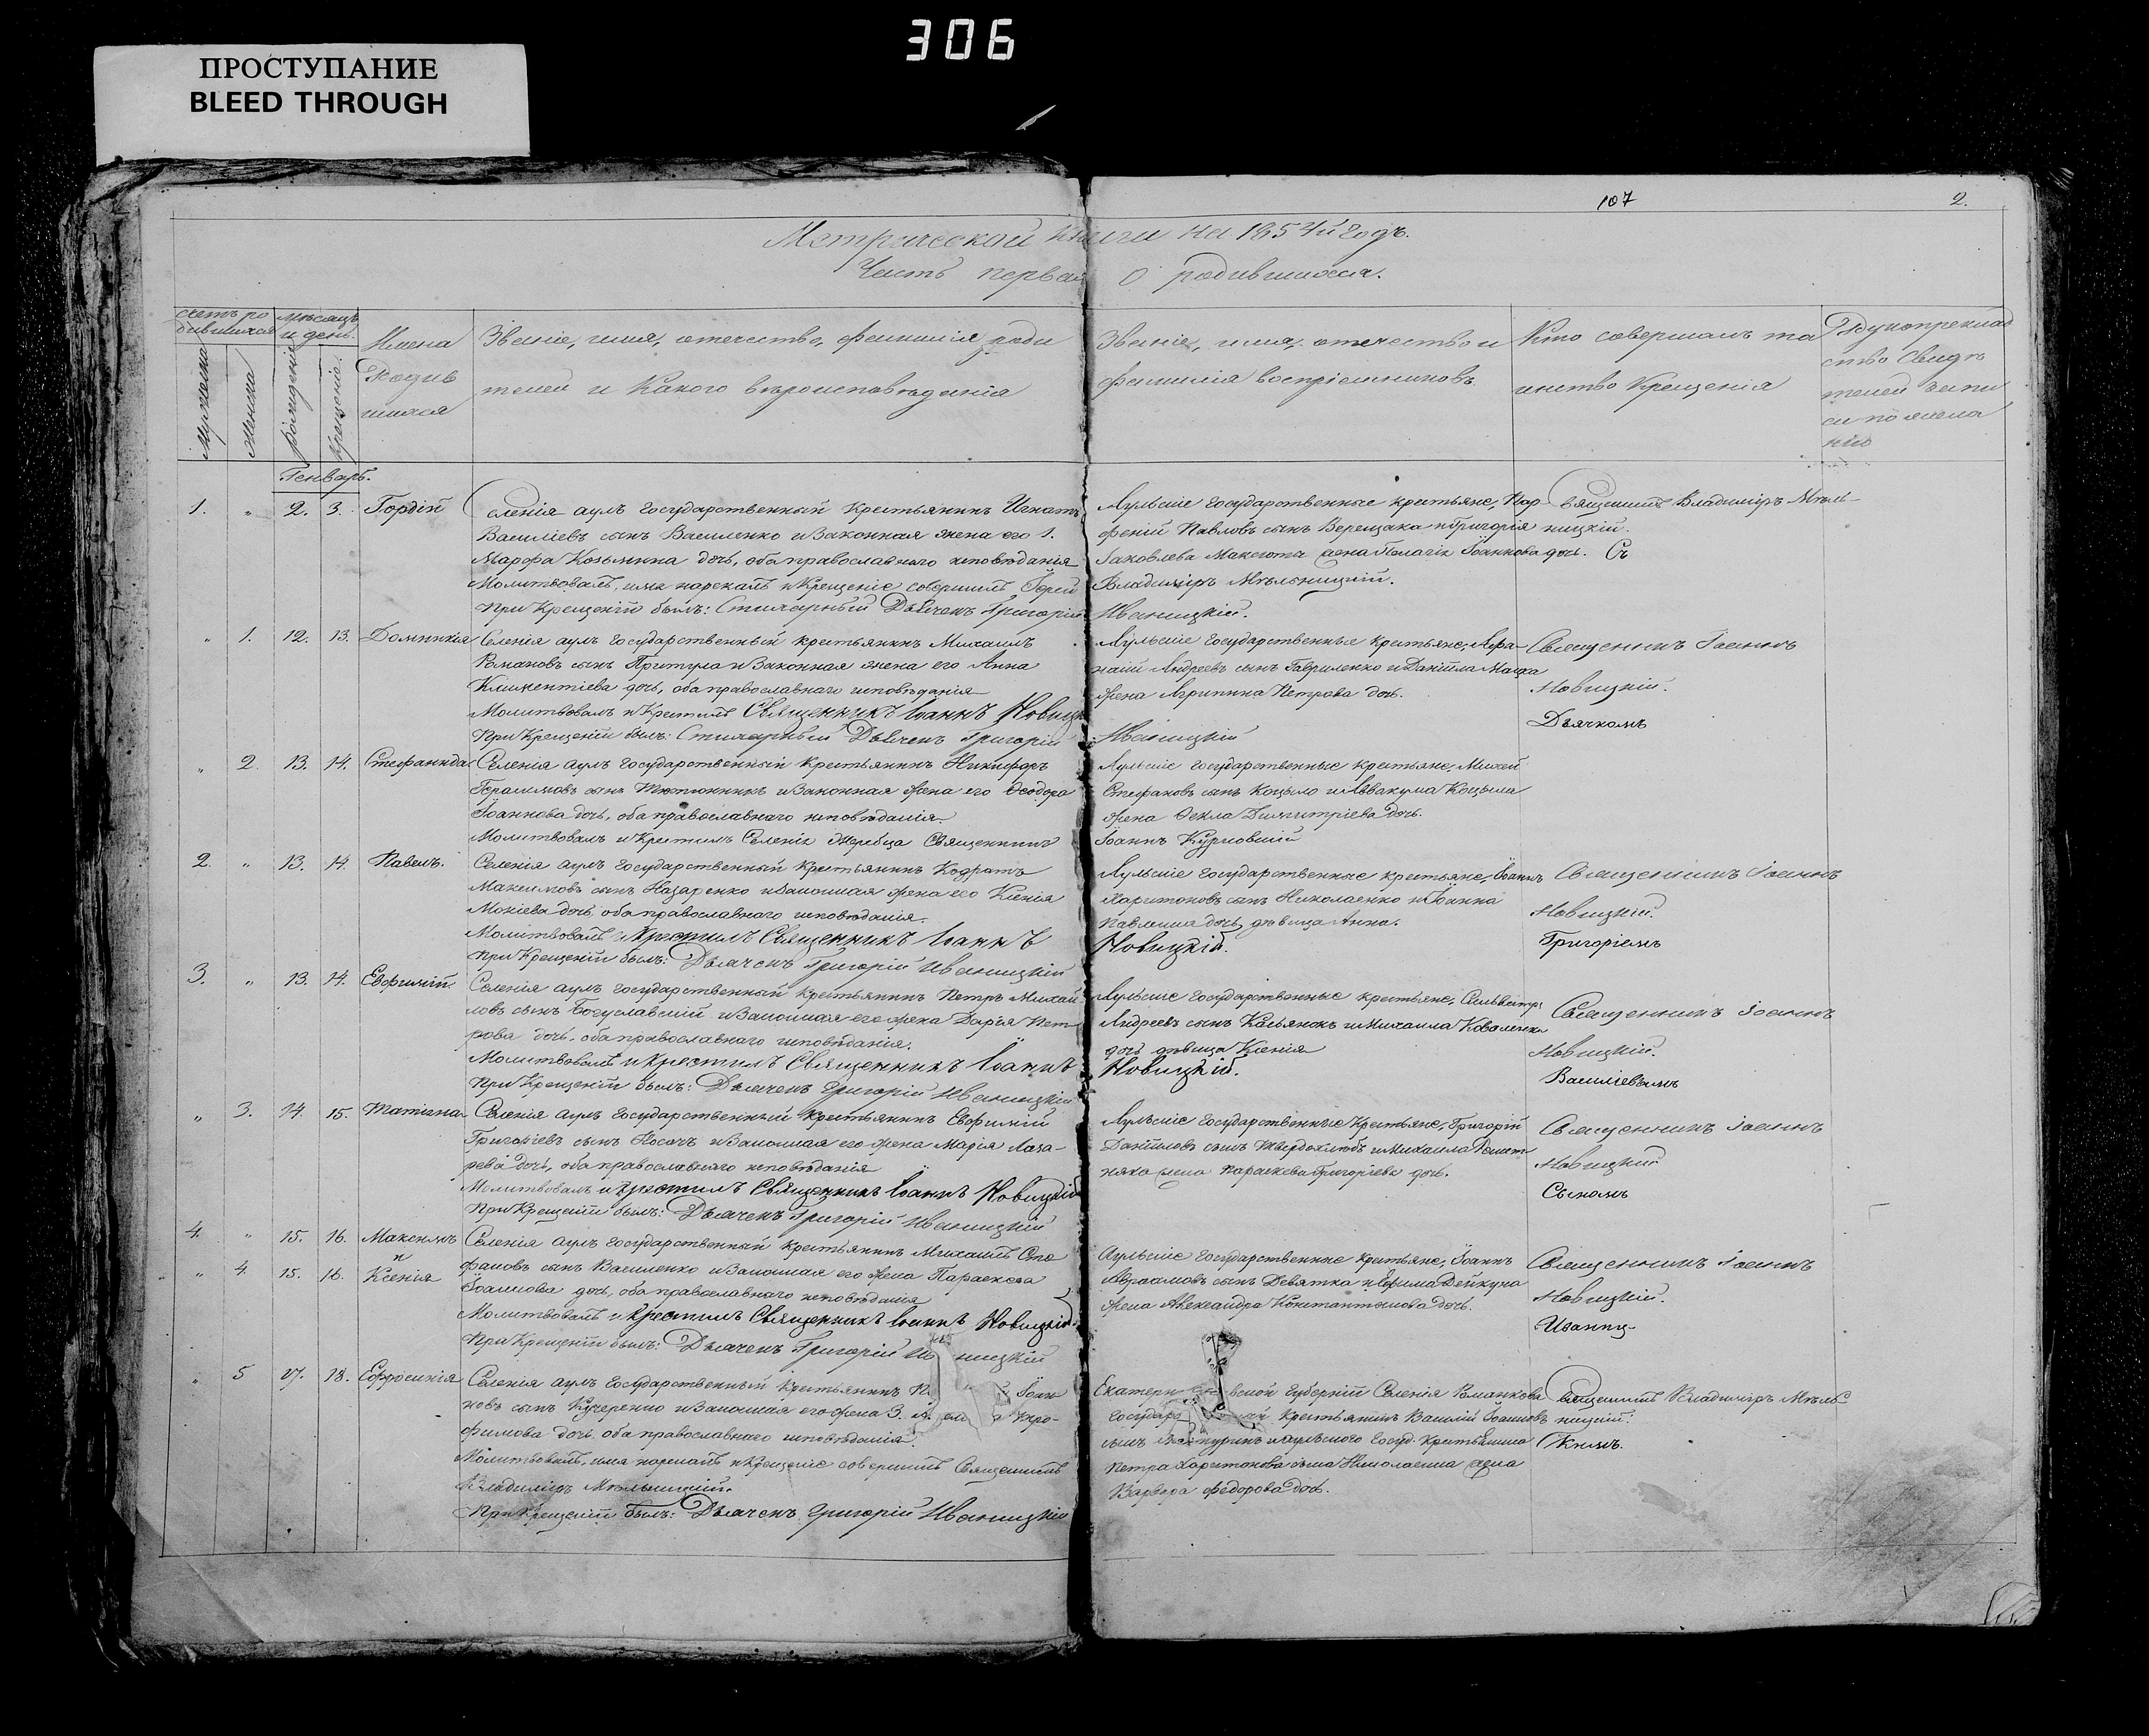 306
ПРОСТУПАНИЕ
BLEED THROUGH
107
2.
Метрической книги на 1854й годъ.
Часть первая О родившихся.
Счетъ ро
дившихся
Мѣсяцъ
и день.
Мужеска
Женска
Рожденіе
Крещеніе.
Имена
Родив
шихся
Званіе, имя, отечество, фамилія роди
телей и какого вѣроисповѣданія
Званіе, имя, отечество и
фамилія воспріемниковъ
Кто совершалъ та
инство Крещенія
Рукоприклад
ство Свидѣ
телей записи
по жела
нію
Генварь.
1. „ 2. 3. Гордій
Селенія аулъ государственный крестьянинъ Игнатъ
Василіевъ сынъ Василенко и Законная жена его 1.
Марфа Козьмина дочь, оба православнаго исповѣданія
Молитвовалъ, имя нарекалъ и Крещеніе совершилъ Іерей
При Крещеніи былъ: Стихарный Дьячекъ Григорій
Аульскіе государственные крестьяне, Пар
феній Павловъ сынъ Верещака и Григорія
Іаковлева жена Пелагія Іоаннова дочь.
Владиміръ Мѣльницкій.
Иваницкій.
Священникъ Владиміръ Мѣль-
ницкій.
Съ
„ 1. 12. 13. Домникія
Селенія аулъ государственный крестьянинъ Михаилъ
Романовъ сынъ Притула и Законная жена его Анна
Климентіева дочь, оба православнаго исповѣданія
Молитвовалъ и Крестилъ Священникъ Іоаннъ Новицк
При Крещеніи былъ: Стихарный Дьячекъ Григорій
Аульскіе государственные крестьяне, Афа
насій Андреевъ сынъ Гавриленко и Даніила
жена Агрипина Петрова дочь.
Иваницкій
Священникъ Іоаннъ
Новицкій.
Дьячкомъ
„ 2. 13. 14. Стефанида
Селенія аулъ государственный крестьянинъ Никифоръ
Герасимовъ сынъ Тютюнникъ и Законная жена его Ѳеодора
Іоаннова дочь, оба православнаго исповѣданія.
Молитвовалъ и Крестилъ Селенія Священникъ
Аульскіе государственные крестьяне, Михаи
Стефановъ сынъ Коцыло и Аввакума Коцыла
жена Ѳекла Димитріева дочь.
Іоаннъ
2. „ 13. 14. Павелъ.
Селенія аулъ государственный крестьянинъ Кодратъ
Максимовъ сынъ Назаренко и Законная жена его Ксенія
Мокіева дочь оба православнаго исповѣданія.
Молитвовалъ и Крестилъ Священникъ Іоаннъ
При Крещеніи былъ: Дьячекъ Григорій Иваницкій
Аульскіе государственные крестьяне, Іоаннъ
Харитоновъ сынъ Николаенко и Іоанна
дочь дѣвица Анна.
Новицкій.
Священникъ Іоаннъ
Новицкій.
Григоріемъ
3. „ 13. 14. Евфимій.
Селенія аулъ государственный крестьянинъ Петръ Михай
ловъ сынъ Богуславскій и Законная его жена Дарья Пет
рова дочь, оба православнаго исповѣданія.
Молитвовалъ и Крестилъ Священникъ Іоаннъ
При Крещеніи былъ: Дьячекъ Григорій Иваницкій
Аульскіе государственные крестьяне, Сильвестръ
Андреевъ сынъ Касьянокъ и Михаила Коваленка
дочь дѣвица Ксенія
Новицкій.
Священникъ Іоаннъ
Новицкій.
Василіевымъ
„ 3. 14. 15. Татіана
Селенія аулъ государственный крестьянинъ Евфимій
Григоріевъ сынъ Носачъ и Законная его жена Марія Лаза-
рева дочь, оба православнаго исповѣданія
Молитвовалъ и Крестилъ Священникъ Іоаннъ Новицкій
При Крещеніи былъ: Дьячекъ Григорій Иваницкій
Аульскіе государственные Крестьяне, Григорій
Даніиловъ сынъ Твердохлюбъ и Михаила Решет
няка жена Параскева Григоріева дочь.
Священникъ Іоаннъ
Новицкій
Сыномъ
4. „ 15. 16. Максимъ
и
„ 4. 15. 16. Ксенія
Селенія аулъ государственный крестьянинъ Михаилъ Сте
фановъ сынъ Василенко и Законная его жена Параскева
Іоаннова дочь, оба православнаго исповѣданія
Молитвовалъ и Крестилъ Священникъ Іоаннъ Новицкій.
При Крещеніи былъ: Дьячекъ Григорій Ив ницкій
Аульскіе государственные Крестьяне, Іоаннъ
Авраамовъ сынъ Девятка и Ефима Дейкуна
жена Александра Константинова дочь.
Священникъ Іоаннъ
Новицкій.
Иваниц-
„ 5 17. 18. Ефросинія
Селенія аулъ государственный крестьянинъ Іоан
новъ сынъ Кучеренко и Законная его жена Тро-
фимова дочь оба православнаго исповѣданія.
Молитвовалъ, имя нарекалъ и Крещеніе совершилъ Священникъ
Владиміръ Мѣльницкій.
При Крещеніи былъ: Дьячекъ Григорій Иваницкій
Екатерин вской Губерніи Селенія Романкова
Государ Крестьянинъ Василій Іоанновъ
сынъ и аульского Госуд. Крестьянина
Петра Харитонова сына Николаенка жена
Варвара Федорова дочь.
Священникъ Владиміръ Мѣль
ницкій.
Кимъ.